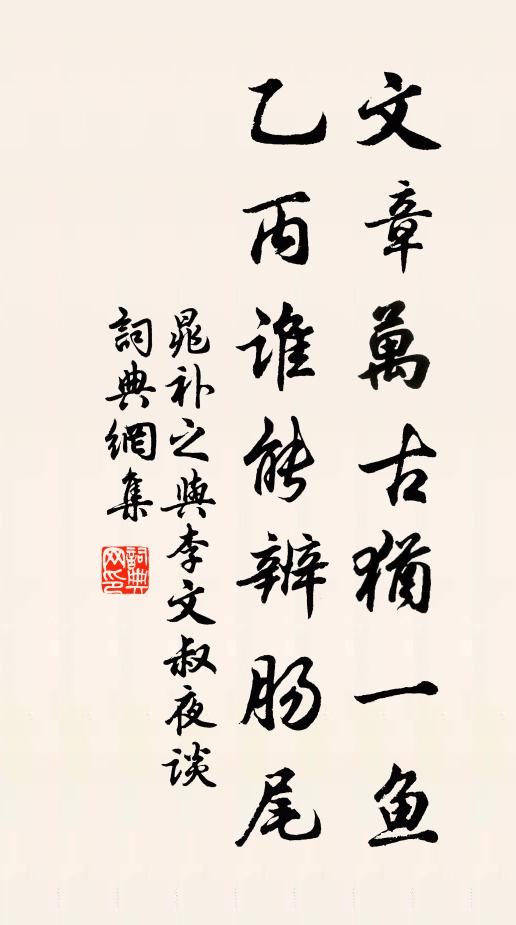 文章萬古猶一鱼
乙丙谁能辨肠尾
晁补之與李文叔夜谈
詞典網集
詞典网印